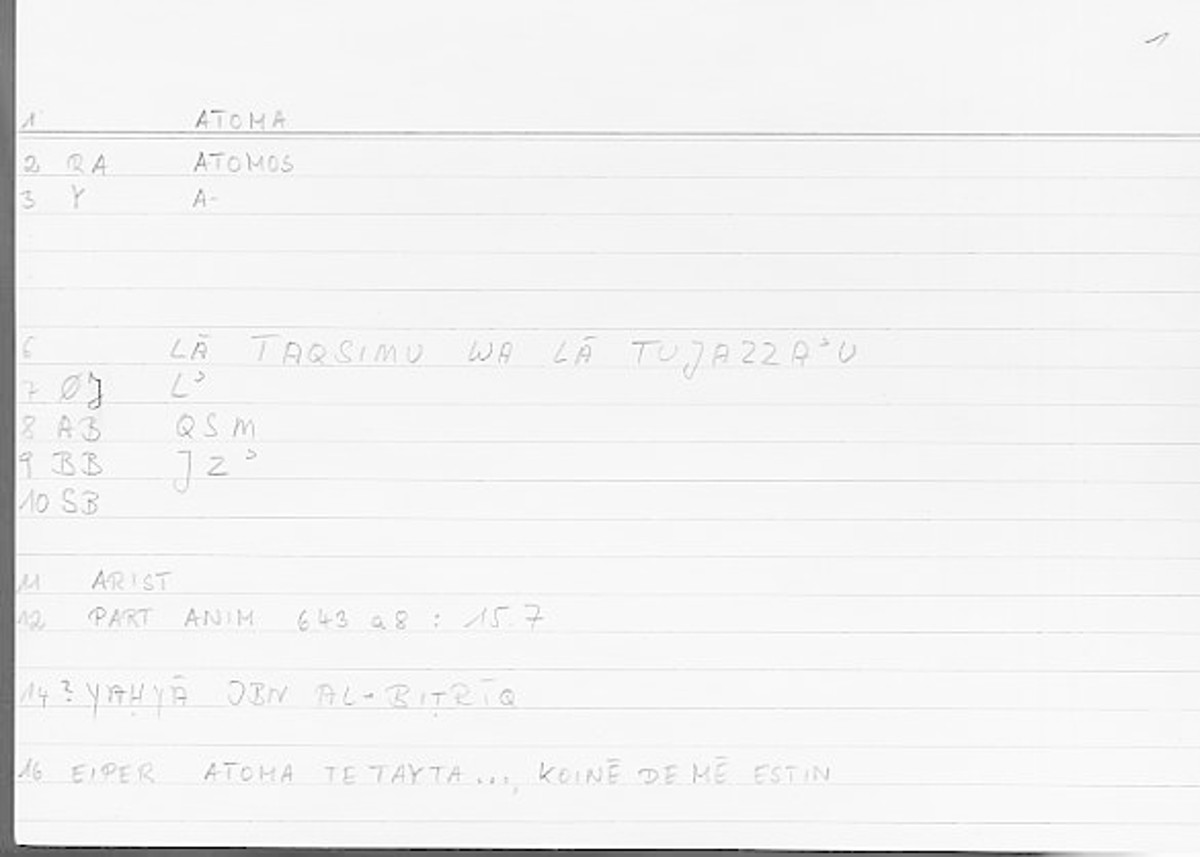 1
1 ATOMA
2 QA ATOMOS
3 Y A-
6 LĀ TAQSIMU WA LĀ TUJAZZAʾU
7 ØJ Lʾ
8 AB QSM
9 BB JZʾ
10 SB
11 ARIST
12 PART ANIM 643 a8 : 15.7
14 ? YAḤYĀ IBN AL-BIṬRĪQ
16 EIPER ATOMA TE TAYTA..., KOINĒ DE MĒ ESTIN